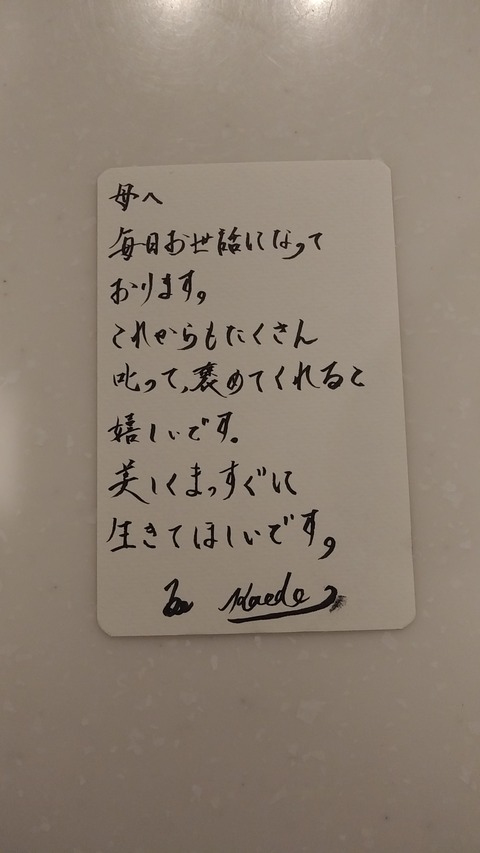 母へ
毎日お世話になって
おります。
これからもたくさん
叱って、褒めてくれると
嬉しいです。
美しくまっすぐに
生きてほしいです。
Kaede